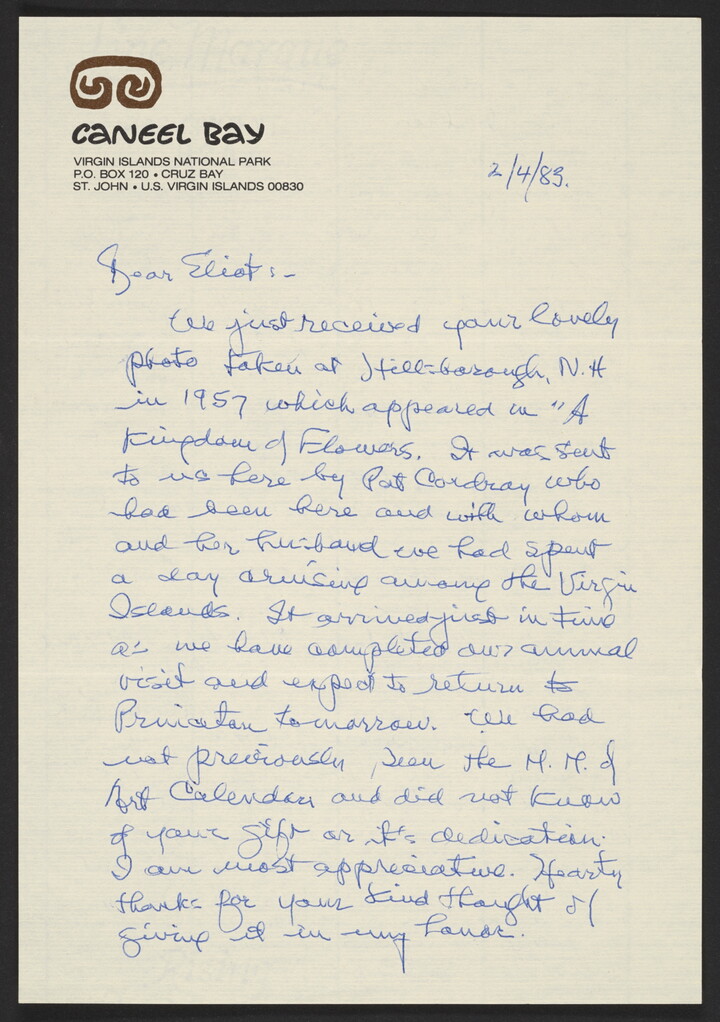 CANEEL BAY
VIRGIN ISLANDS NATIONAL PARK
P.O. BOX 120 • CRUZ BAY
ST. JOHN • U.S. VIRGIN ISLANDS 00830
2/4/83.
Dear Eliot:-
We just received your lovely
photo taken at Hillsborough, N.H
in 1957 which appeared in "A
Kingdom of Flowers. It was sent
to us here by Pat Cordray who
had been here and with whom
and her husband we had spent
a day cruising among the Virgin
Islands. It arrived just in time
as we have completed our annual
visit and expect to return to
Princeton tomorrow. We had
not previously seen the M. M. of
Art Calendar and did not know
of your gift or it's dedication.
I am most appreciative. Hearty
thanks for your kind thought of
giving it in my honor.